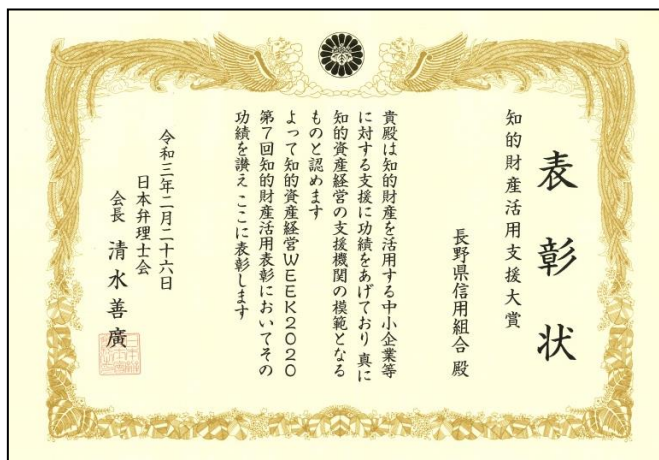 表彰状
知的財産活用支援大賞
長野県信用組合 殿
貴殿は知的財産を活用する中小企業等
に対する支援に功績をあげており 真に
知的資産経営の支援機関の模範となる
ものと認めます
よって知的資産経営WEEK2020
第7回知的財産活用表彰においてその
功績を讃え ここに表彰します
令和三年二月二十六日
日本弁理士会
会長 清水善廣